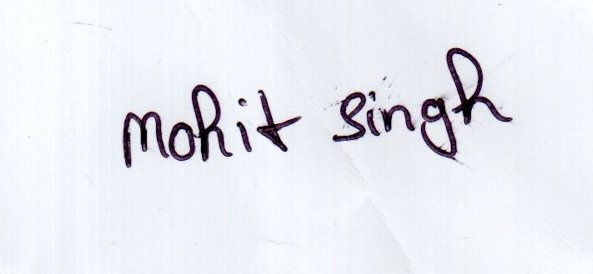 Mohit Singh